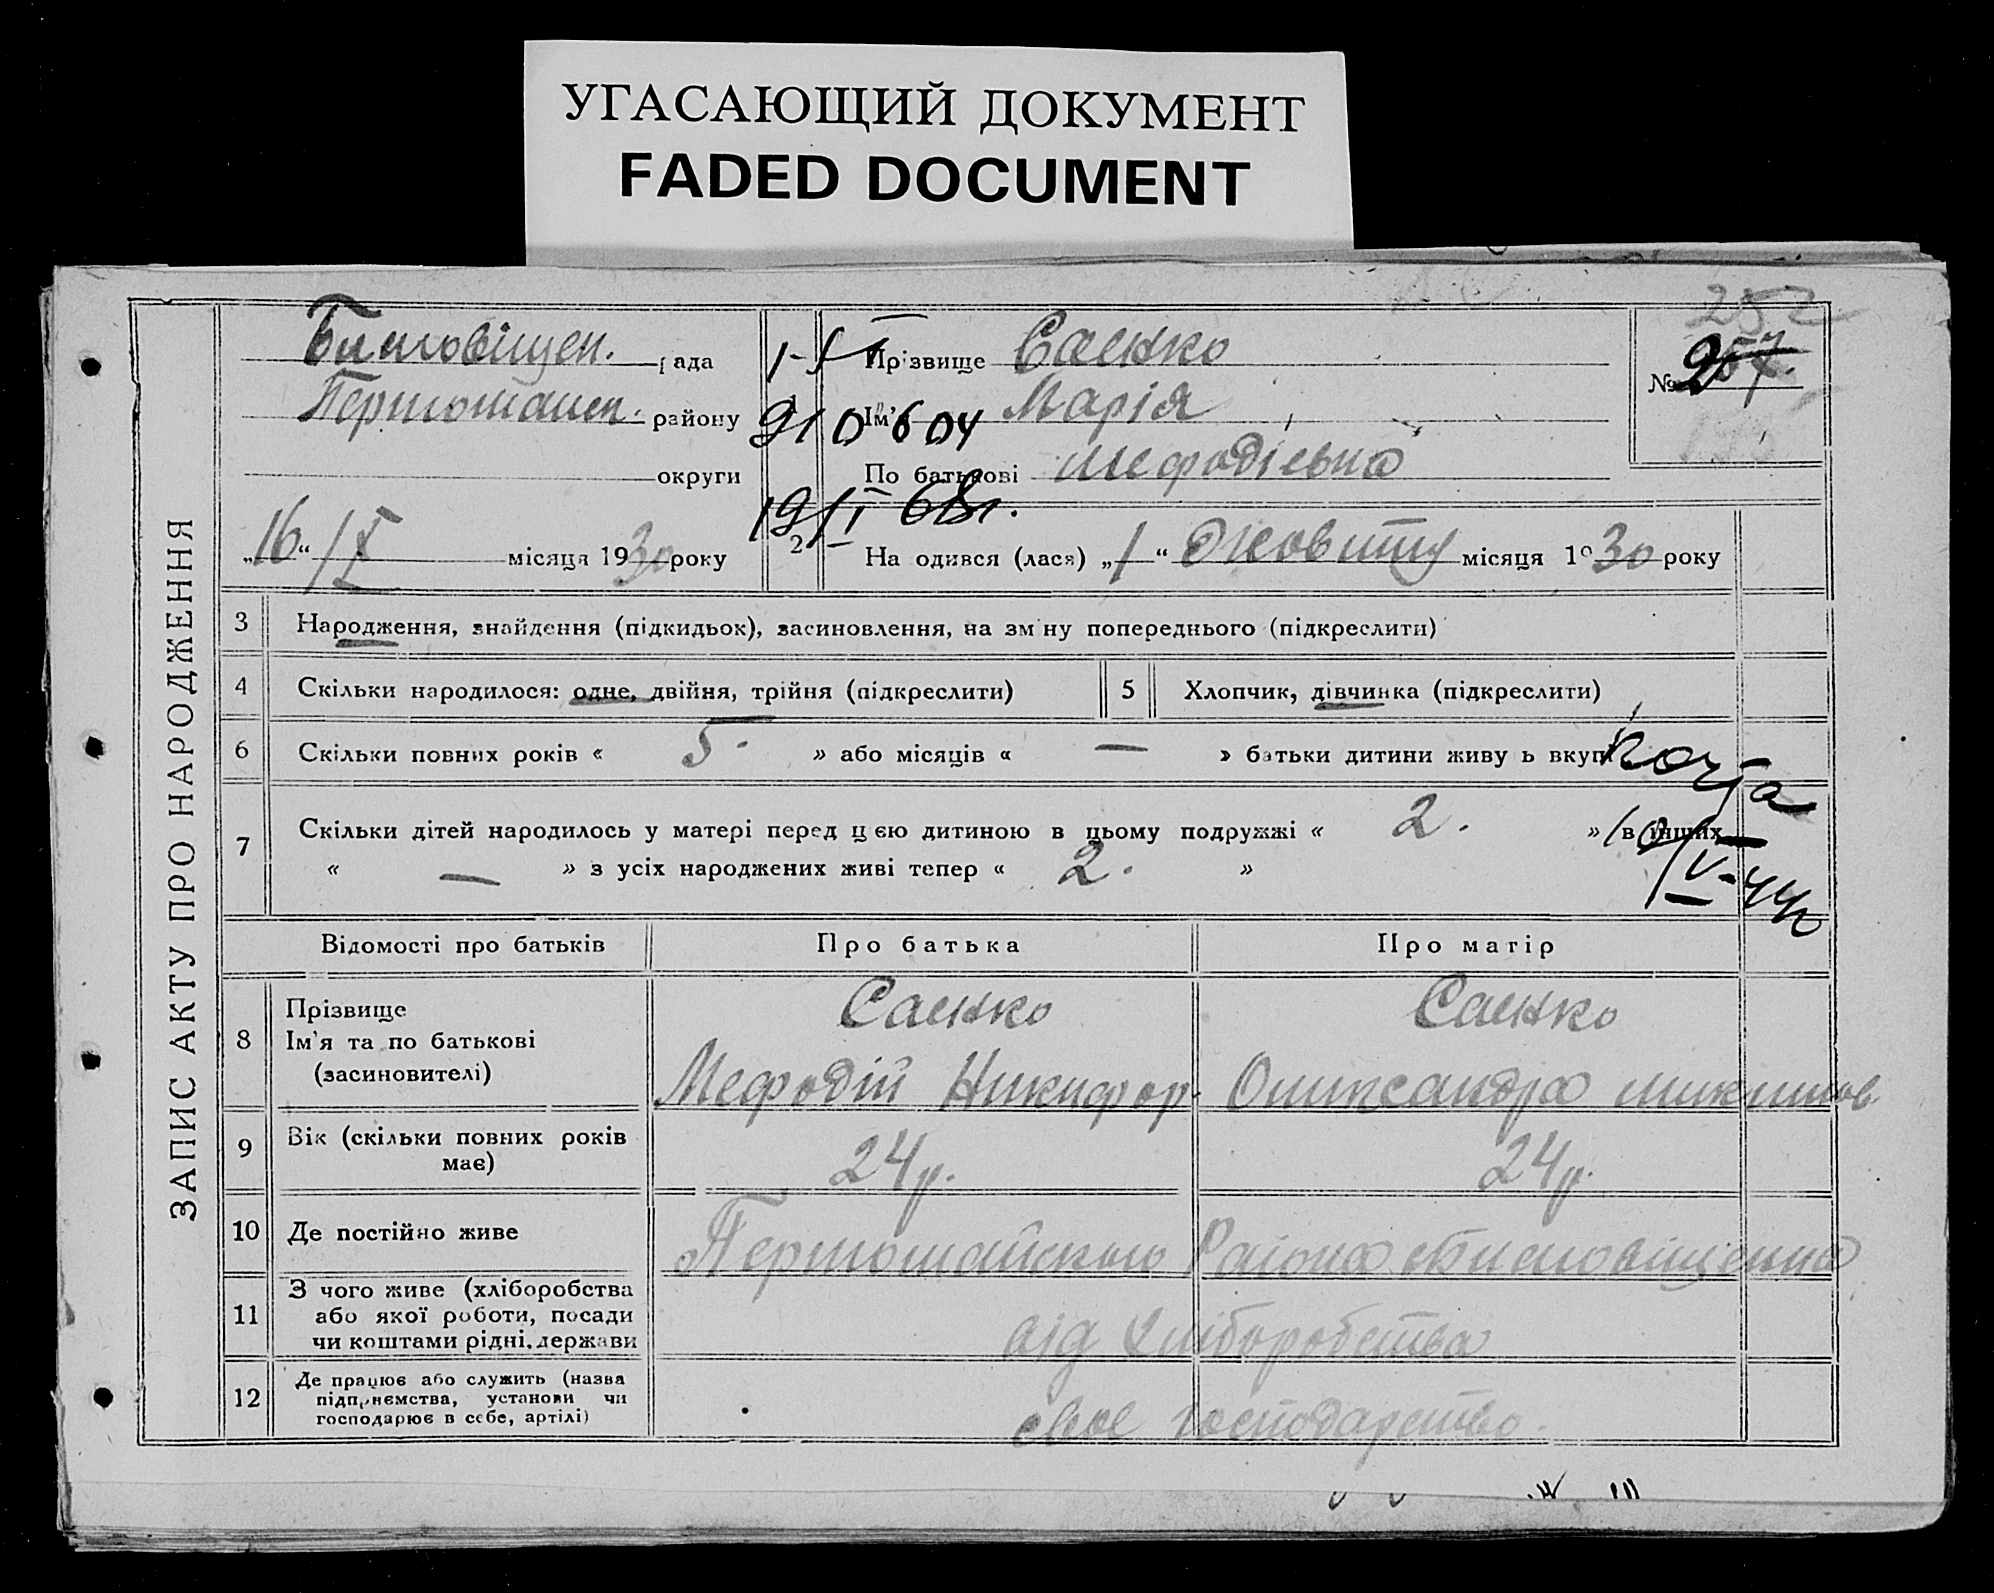 УГАСАЮЩИЙ ДОКУМЕНТ
FADED DOCUMENT
ЗАПИС АКТУ ПРО НАРОДЖЕННЯ
рада
району
округи
„16“ IX місяця 1930 року
1-
910604
19/I 68г.
Прізвище Саенко
Ім'я Марія
По батькові Мефодіевна
252
№ 257.
2
На одився (лася) „1“ Жовтня місяця 1930 року
3 Народження, знайдення (підкидьок), засиновлення, на зм ну попереднього (підкреслити)
4 Скільки народилося: одне, двійня, трійня (підкреслити)
5 Хлопчик, дівчинка (підкреслити)
6 Скільки повних років « 5. » або місяців « — » батьки дитини живу ь вкупі
копія
10/V-44
7 Скільки дітей народилось у матері перед цією дитиною в цьому подружжі « 2. » в інших
« — » з усіх народжених живі тепер « 2. »
Відомості про батьків Про батька Про матір
8 Прізвище
Ім'я та по батькові
(засиновителі)
Саенко
Мефодій Никифор.
Саенко
Олександра
9 Вік (скільки повних років
має)
24р. 24р.
10 Де постійно живе
Першомайського Района
11 З чого живе (хліборобства
або якої роботи, посади
чи коштами рідні, держави
від хліборобства
12 Де працює або служить (назва
підприємства, установи чи
господарює в себе, артілі)
свое господарство.